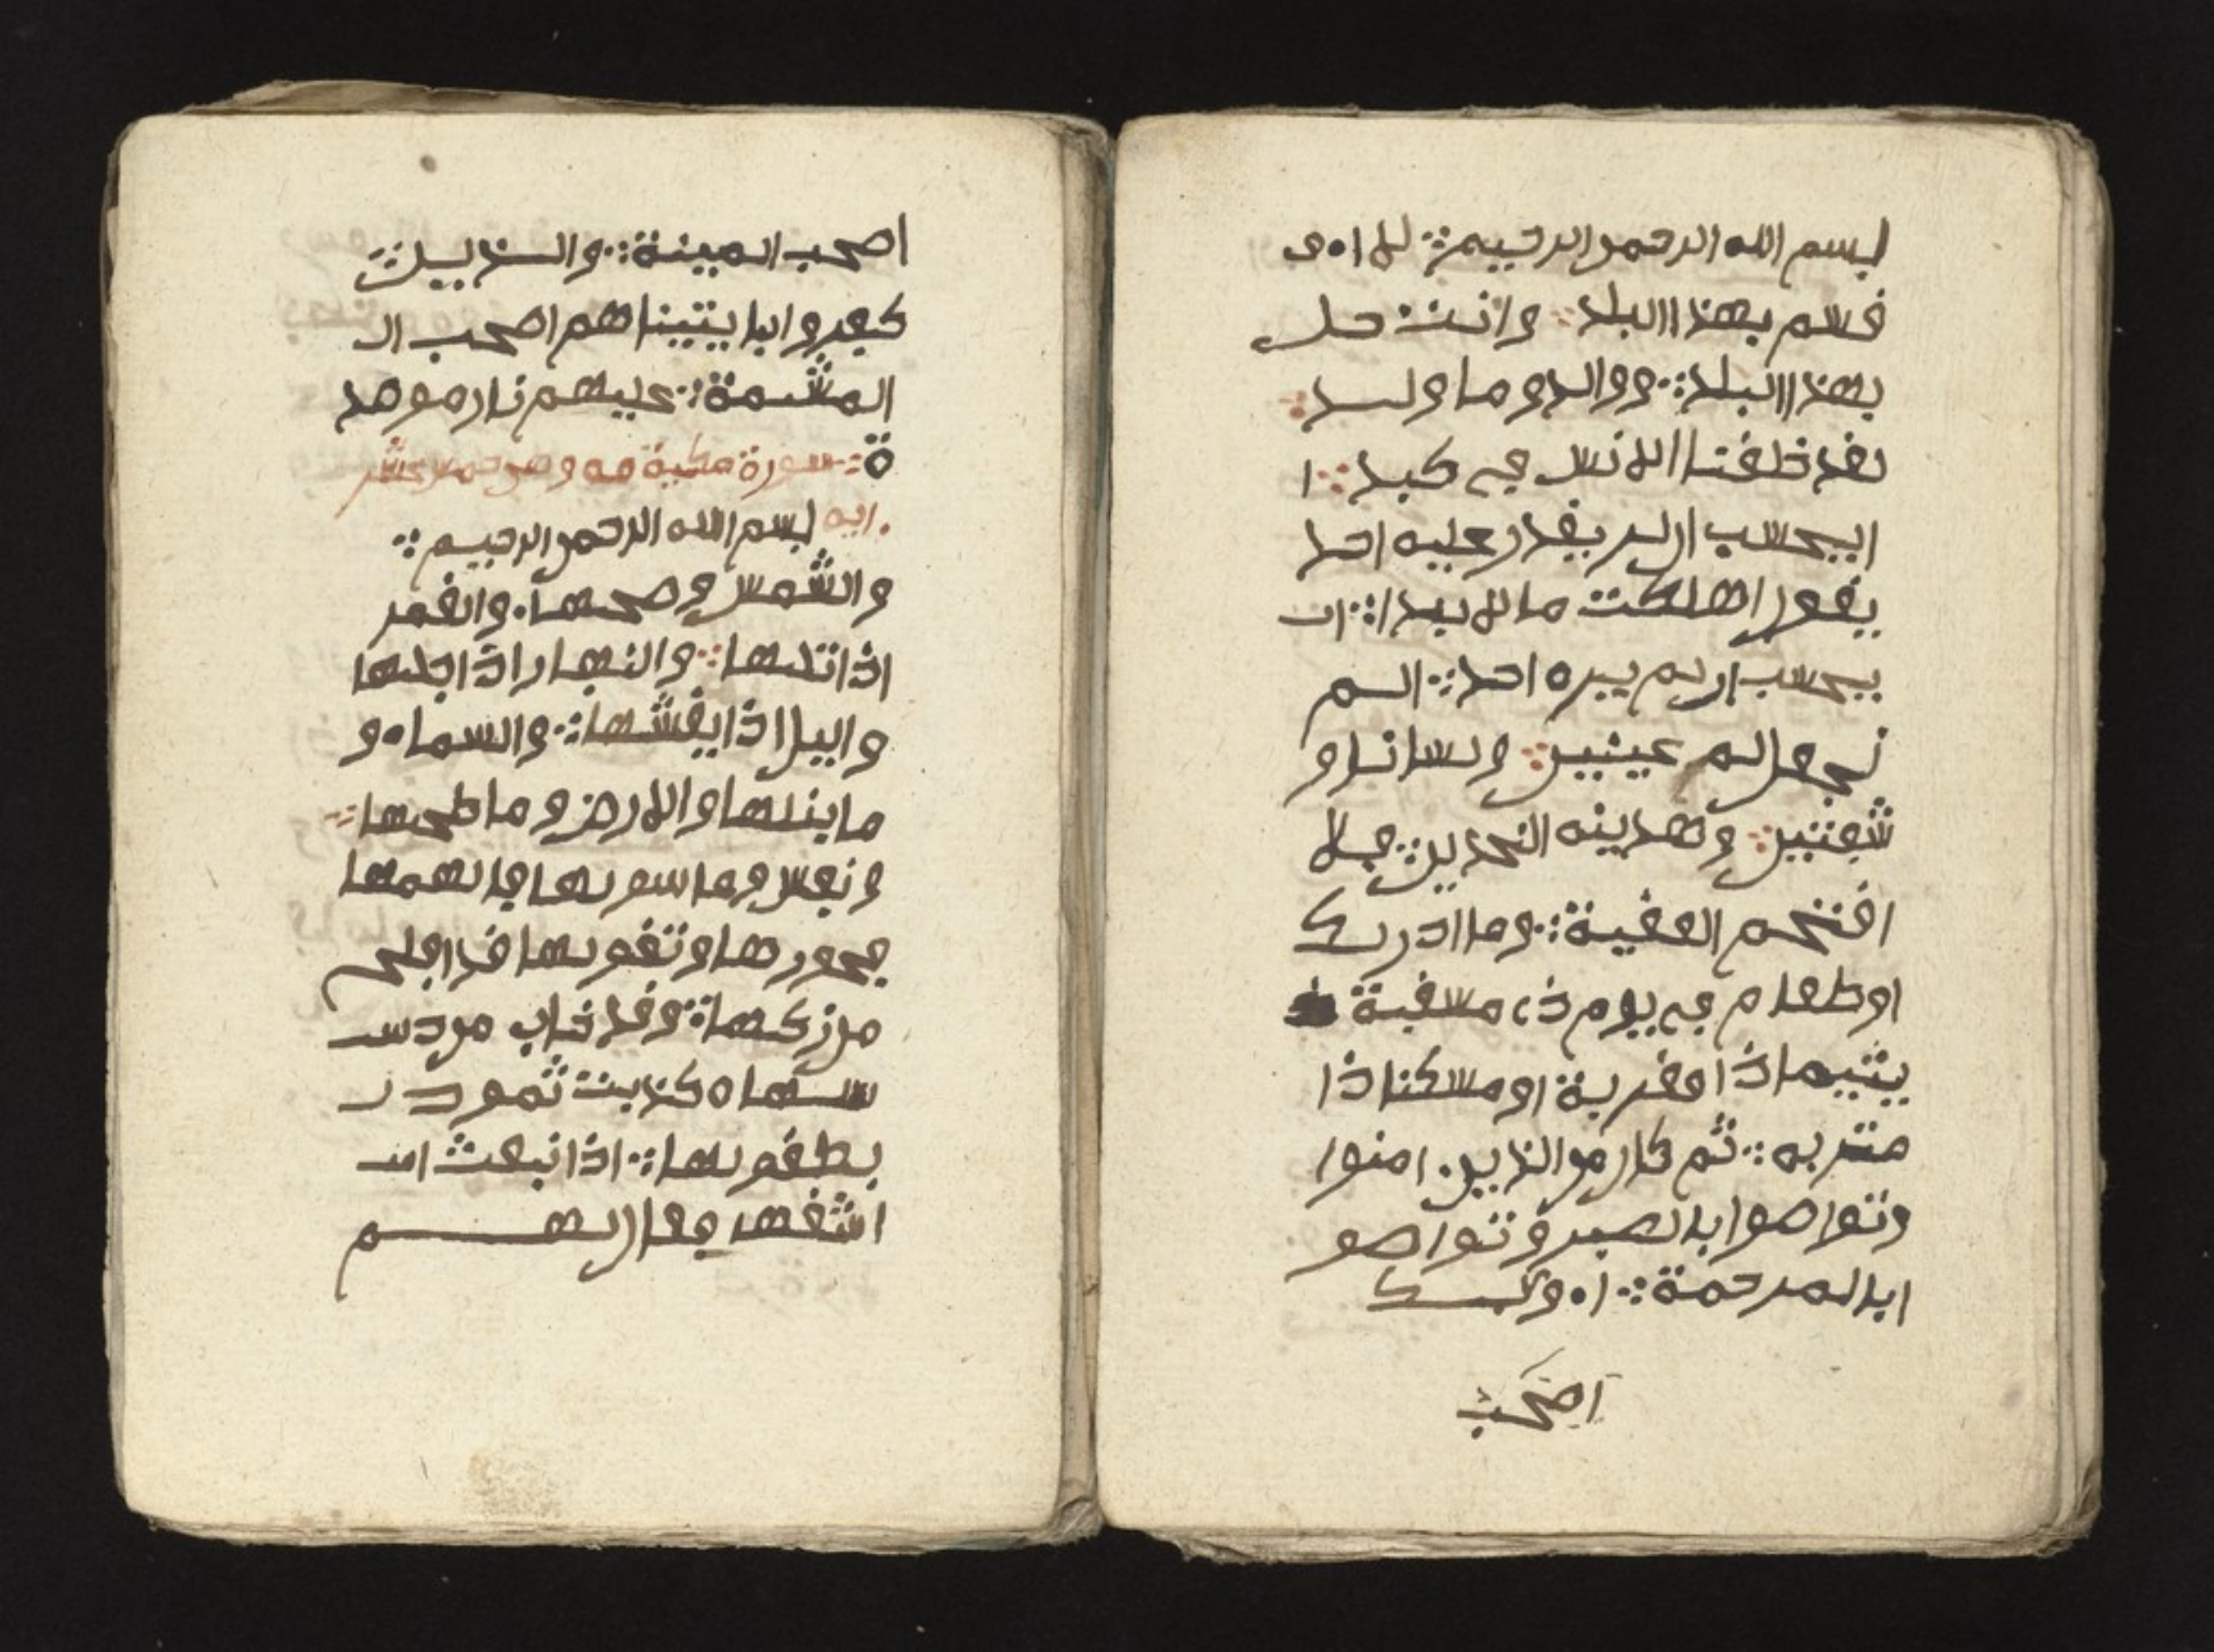 بسم الله الرحمن الرحيم لا ا
قسم بهذا البلد وانت حل
بهذا البلد ووالد وما ولد
لقد خلقنا الانس في كبد ا
ايحسب ان لن يقدر عليه احد
يقول اهلكت مالا لبدا ا
يحسب ان لم يره احد الم
نجعل له عينين ولسانا و
شفتين وهدينه النجدين فلا
اقتحم العقبة وما ادريك
او طعام في يوم ذي مسغبة
يتيما ذا مقربة او مسكنا ذا
متربه ثم كان من الذين امنوا
وتواصوا بالصبر وتواصو
ا بالمرحمة اولىك
اصحب
اصحب الميمنة والذين
كفروا بايتينا هم اصحب ال
المشمة عليهم نار موصد
ة سورة مكية وهي خمس عشر
ايه بسم الله الرحمن الرحيم
والشمس وضحيها والقمر
اذا تليها والنهار اذا جليها
واليل اذا يغشيها والسماء و
ما بنيها والارض وما طحيها
ونفس وما سويها فالهمها
فجورها وتقويها قد افلح
من زكيها وقد خاب من دس
سيها كذبت ثمود
بطغويها اذ انبعث
اشقها فقال لهم